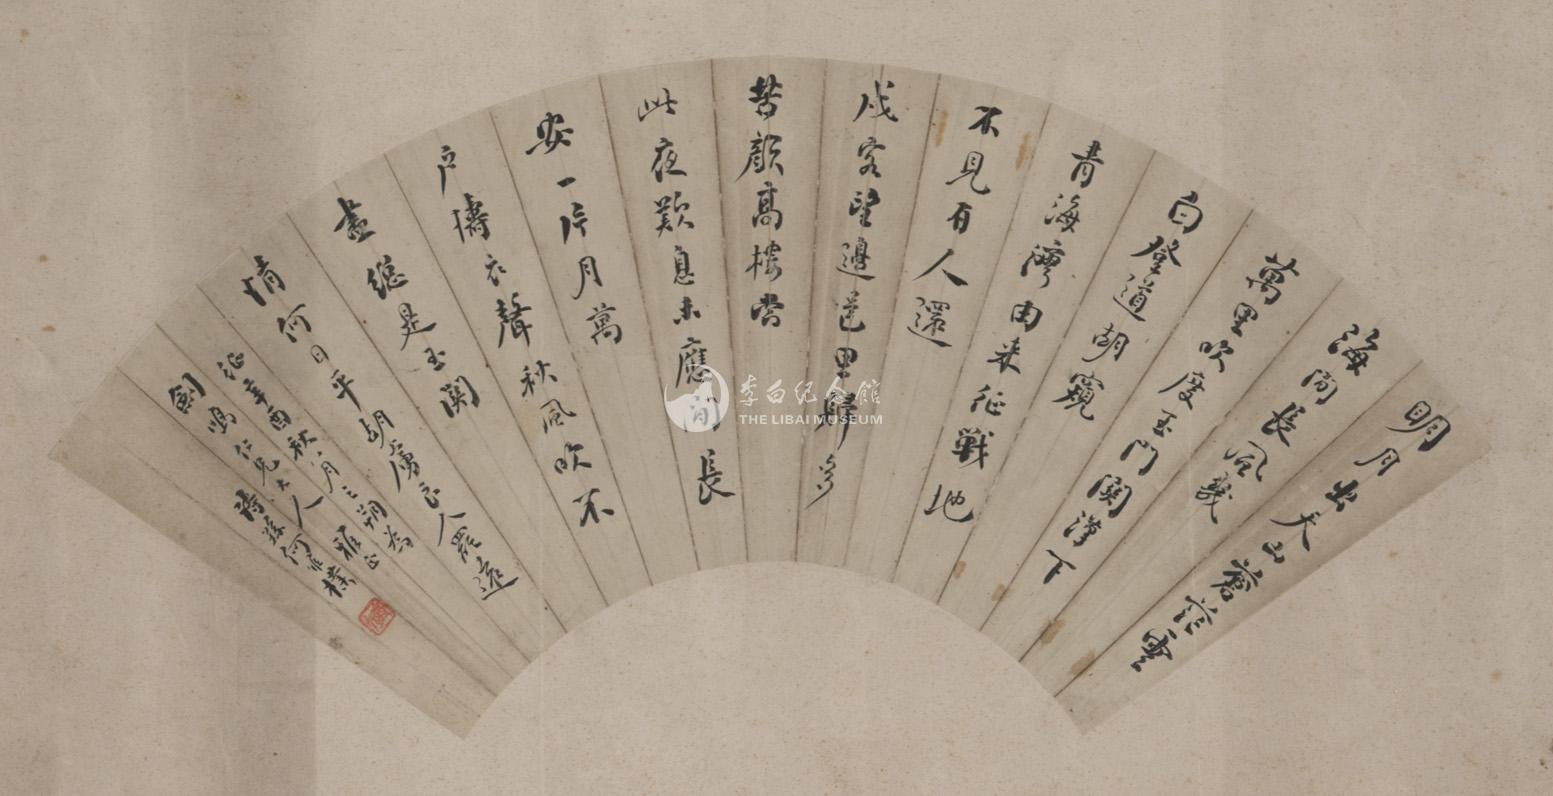 明月出天山蒼茫雲
海間長風幾
萬里吹度玉門關漢下
白登道胡窺
青海灣由来征戰地
不見有人還
戍客望邊邑思歸多
苦顏高樓當
此夜歎息未應閒長
安一片月萬
户擣衣聲秋風吹不
盡總是玉關
情何日平胡虜良人罷遠
征辛酉秋八月之朔為
劍鳴仁兄大人雅正
何維樸
李白纪念館
THE LIBAI MUSEUM